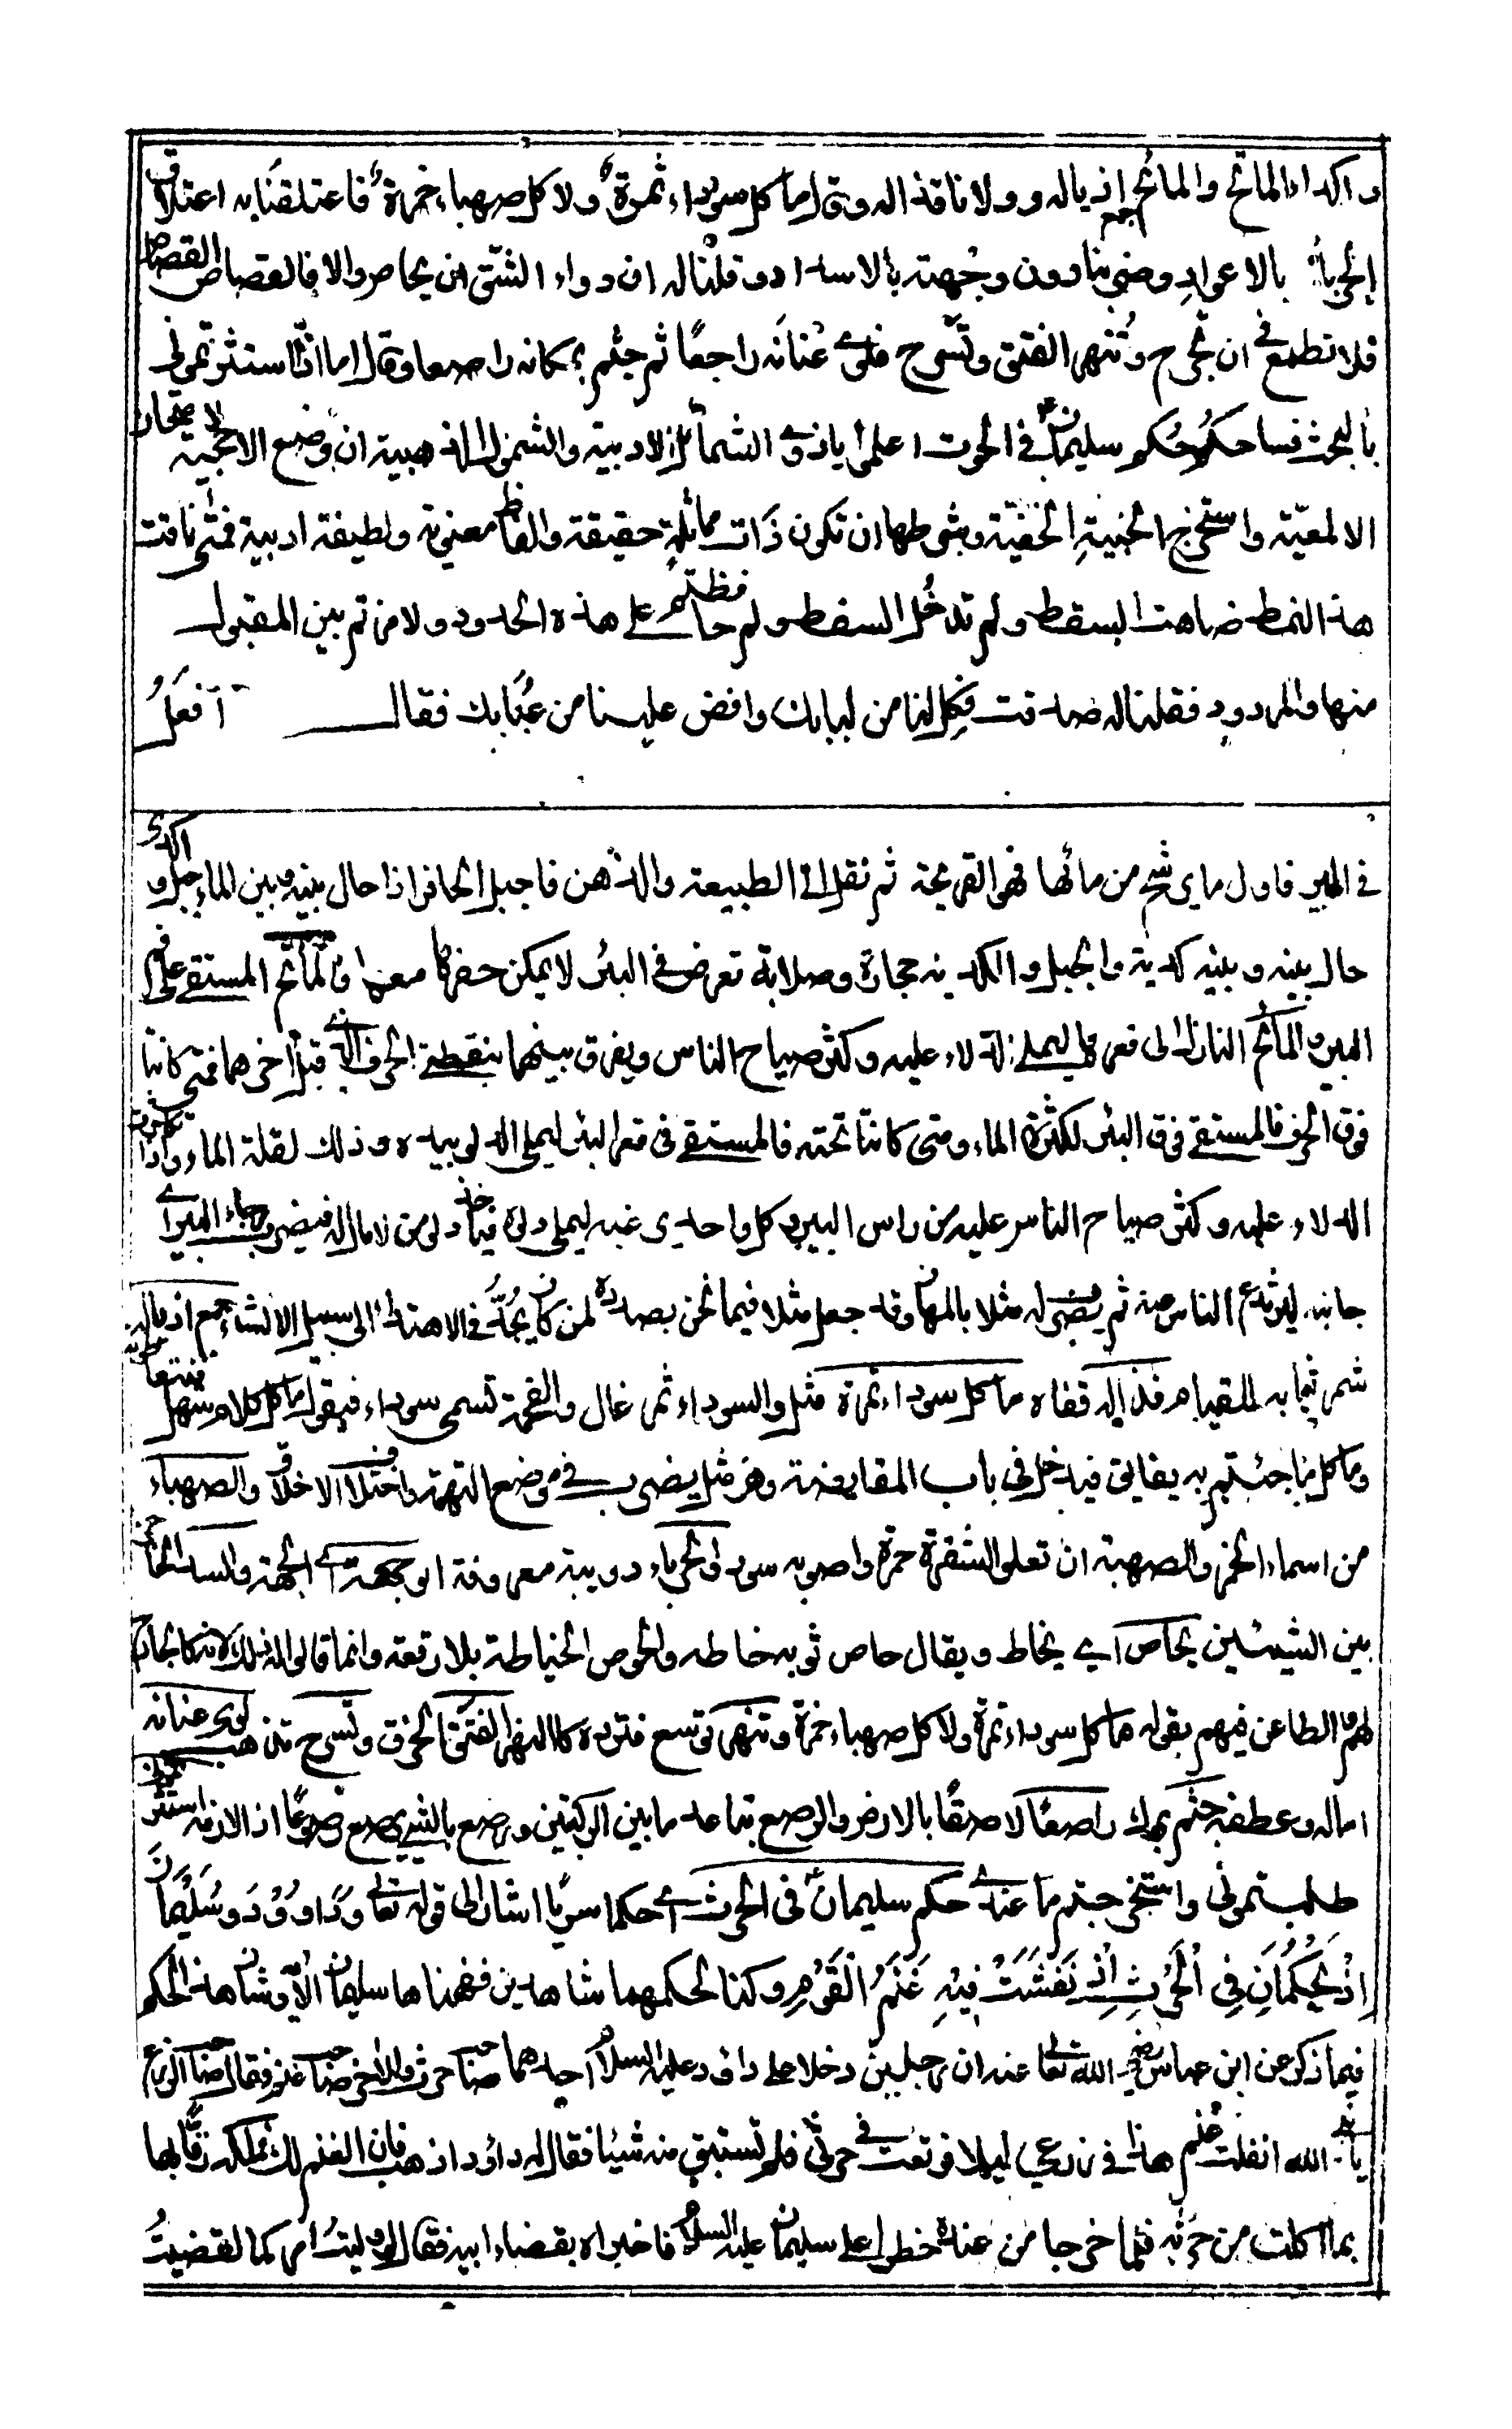 واكداء الماتح والمائح جمع اذياله وولا ناقذاله وقال ما كل سوداء ثمرة ولا كل صهباء خمرة فاعتلقنا به اعتلاق
الحرباء بالاعواد وضربنا دون وجهته بالاسداد وقلنا له ان دواء الشق ان يحاص والا فالقصاص القصاص
فلا تطمع في ان تجرح وتنهر الفتق وتسرح فلوى عنانه راجعا ثم جثم بمكانه راصعا وقال اما اذا استثرتموني
بالبحث فساحكم حكم سليمان في الحرث اعلموا يا ذوي الشمائل الادبية والشمول الذهبية ان وضع الاحجية لامتحان
الالمعية واستخراج الخبية الخفية وشرطها ان تكون ذات مماثلة حقيقة والفاظ معنوية ولطيفة ادبية فمتى نافت
هذا النمط ضاهت السقط ولم تدخل السفط ولم حافظتم على هذه الحدود ولا مزتم بين المقبول
منها والمردود فقلنا له صدقت فكل لنا من لبابك وافض علينا من عبابك فقال آفعل
في البير فاول ما يرشح من مائها فهو القريحة ثم نقل الى الطبيعة والذهن فاجبل الحافر اذا حال بينه وبين الماء جبل واكدى
حال بينه وبينه كدية والجبل والكدية حجارة وصلابة تعرض في البئر لا يمكن حفرها معها والماتح المستقي على فم
البير والمائح النازل الى قعرها ليملي الدلاء عليه وكثر صياح الناس ويفرق بينهما بنقطة الحرف الذي قبل اخرهما فمتى كانتا
فوق الحرف فالمستقي فوق البئر لكثرة الماء ومتى كانتا تحته فالمستقي في قعر البئر ليملي الدلو بيده وذلك لقلة الماء واذا تكاثرت
الدلاء عليه وكثر صياح الناس عليه من راس البير كل واحد يرغبه ليملي دلوه فياخذ دلو من لا ماء له فيضرب ارجاء البير اي
جانبه ليرتدع الناس منه ثم يضرب له مثلا بالمهان وقد جعل مثلا فيما نحن بصدده لمن كان يجد في الاهتداء الى سبيل الانشاء جمع اذياله
شمر ثيابه للقيام قذاله قفاه ما كل سوداء ثمرة مثل والسوداء ثمر غال والفحمة تسمى سوداء فيقول ما كل كلام سهل
وما كل ما جئتم به يفايق فيدخل في باب المقايضة وهو مثل يضرب في موضع التهمة واختلاف الاخلاق والصهباء
من اسماء الخمر والصهبة ان تعلو الشقرة حمرة واصوله سود والحرباء دويبة معروفة وجهته اي الجهة والسد الحاجز
بين الشيئين يحاص اي يخاط ويقال حاص ثوبه خاطه والحوص الخياطة بلا رقعة وانما قالوا له ذلك لانه كالجارح
لهم والطاعن فيهم بقوله ما كل سوداء ثمرة ولا كل صهباء خمرة وتنهر توسع فتوده كالنهر الفتق الخرق وتسرح تذهب لوى عنانه
اماله وعطفه جثم برك راصعا لاصقا بالارض والرصع تباعد ما بين الركبتين ورصع بالشيء يرصع رصوعا اذا لازمه استثرتموني
طلبتموني واستخرجتم ما عندي حكم سليمان في الحرث اي حكما سويا اشار الى قوله تعالى وَدَاوُودَ وَسُلَيْمَانَ
اِذْ يَحْكُمَانِ فِي الْحَرْثِ اِذْ نَفَشَتْ فِيْهِ غَنَمُ الْقَوْمِ وكنا لحكمهم شاهدين ففهمناها سليمان الآية وشان هذا الحكم
فيما ذكر عن ابن عباس رضي الله تعالى عنه ان رجلين دخلا على داؤد عليه السلام احدهما صاحب حرث والاخر صاحب غنم فقال صاحب الزرع
يا نبي الله انفلت غنم هذا في زرعي ليلا فوقعت في حرثي فلم تستبق منه شيئا فقال له داؤد اذهب فان الغنم لك فملكه رقابها
بما اكلت من حرثه فلما خرجا من عنده خطرا على سليمان عليه السلام فاخبراه بقضاء ابيه فقال لو وليت امركما لقضيت